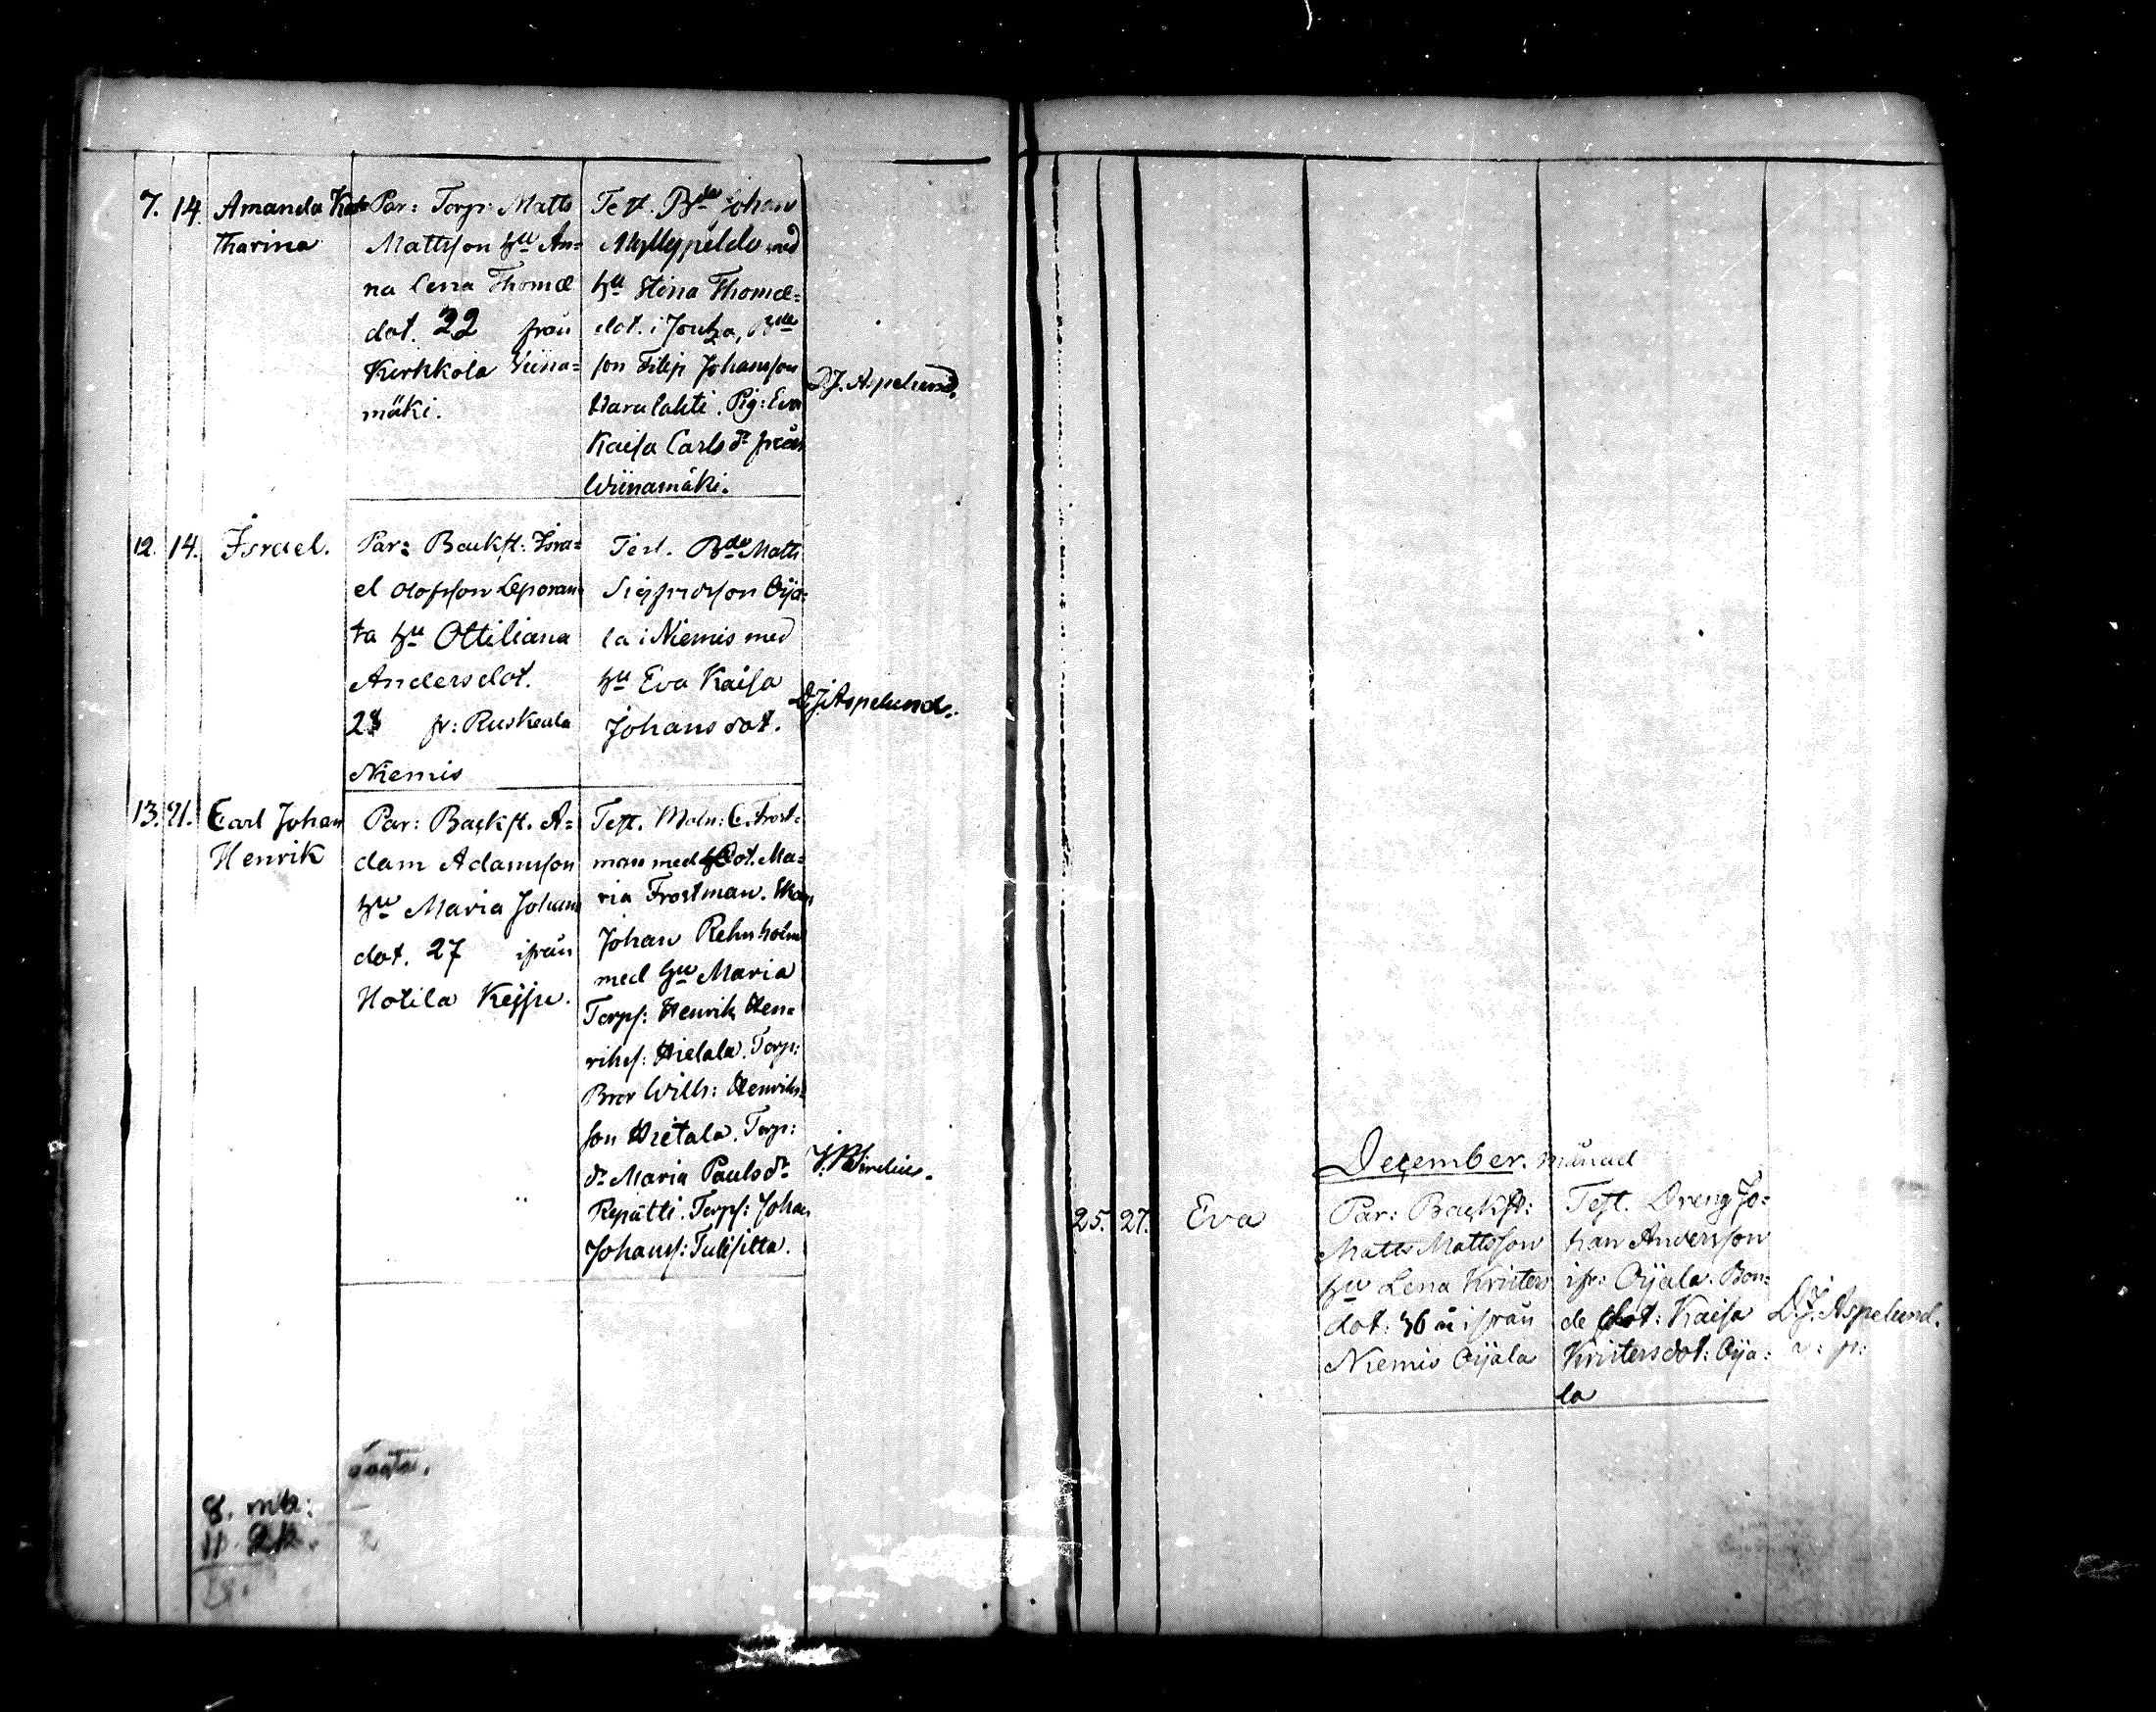 7. 14. Amanda Ka-
tharina
Par: Torp: Matts
Mattsson hu An=
na Lena Thomæ
dot. 22 från
Kirkkola Viina=
mäki.
Test. Bde Johan
Myllypeldo med
hu Stina Thomæ=
dot. i Joutza, Bde
son Filip Johansson
Haralahti. Pig: Eva
Kaisa Carlsdr från
Wiinamäki.
D.J. Aspelund.
12. 14. Israel.
Par: Backst: Isra=
el Olofsson Leporan
ta hu Ottiliana
Andersdot.
28 fr: Ruskeala
Niemis
Test. Bde Matts
Sigfridsson Oija=
la i Niemis med
hu Eva Kaisa
Johansdot.
D.J. Aspelund.
13. 21. Carl Johan
Henrik
Par: Backst. A=
dam Adamsson
hu Maria Johans
dot. 27 ifrån
Hotila Kejju.
Test. Maln: C. Frost=
man med Dot. Ma=
ria Frostman.
Johan Rehnholm
med hu Maria
Torps: Henrik Hen=
riks: Hietala. Torp:
Bror Wilh: Henriks=
son Hietala. Torp:
dr Maria Paulsdr
Repätti. Torps: Johan
Johans: Tulisitta.
8. mk:
11. qk.
December. månad
25. 27. Eva
Par: Backst:
Matts Mattsson
hu Lena Krister
dot: 36 å ifrån
Niemis Oijala
Test. Dreng Jo=
han Andersson
ifr: Oijala. Bon=
de dot: Kaisa
Kristersdot: Oija=
la
D.J. Aspelund.
v: p: